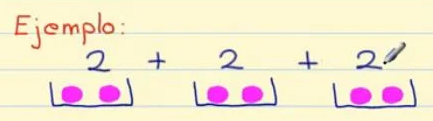 Ejemplo:
2 + 2 + 2